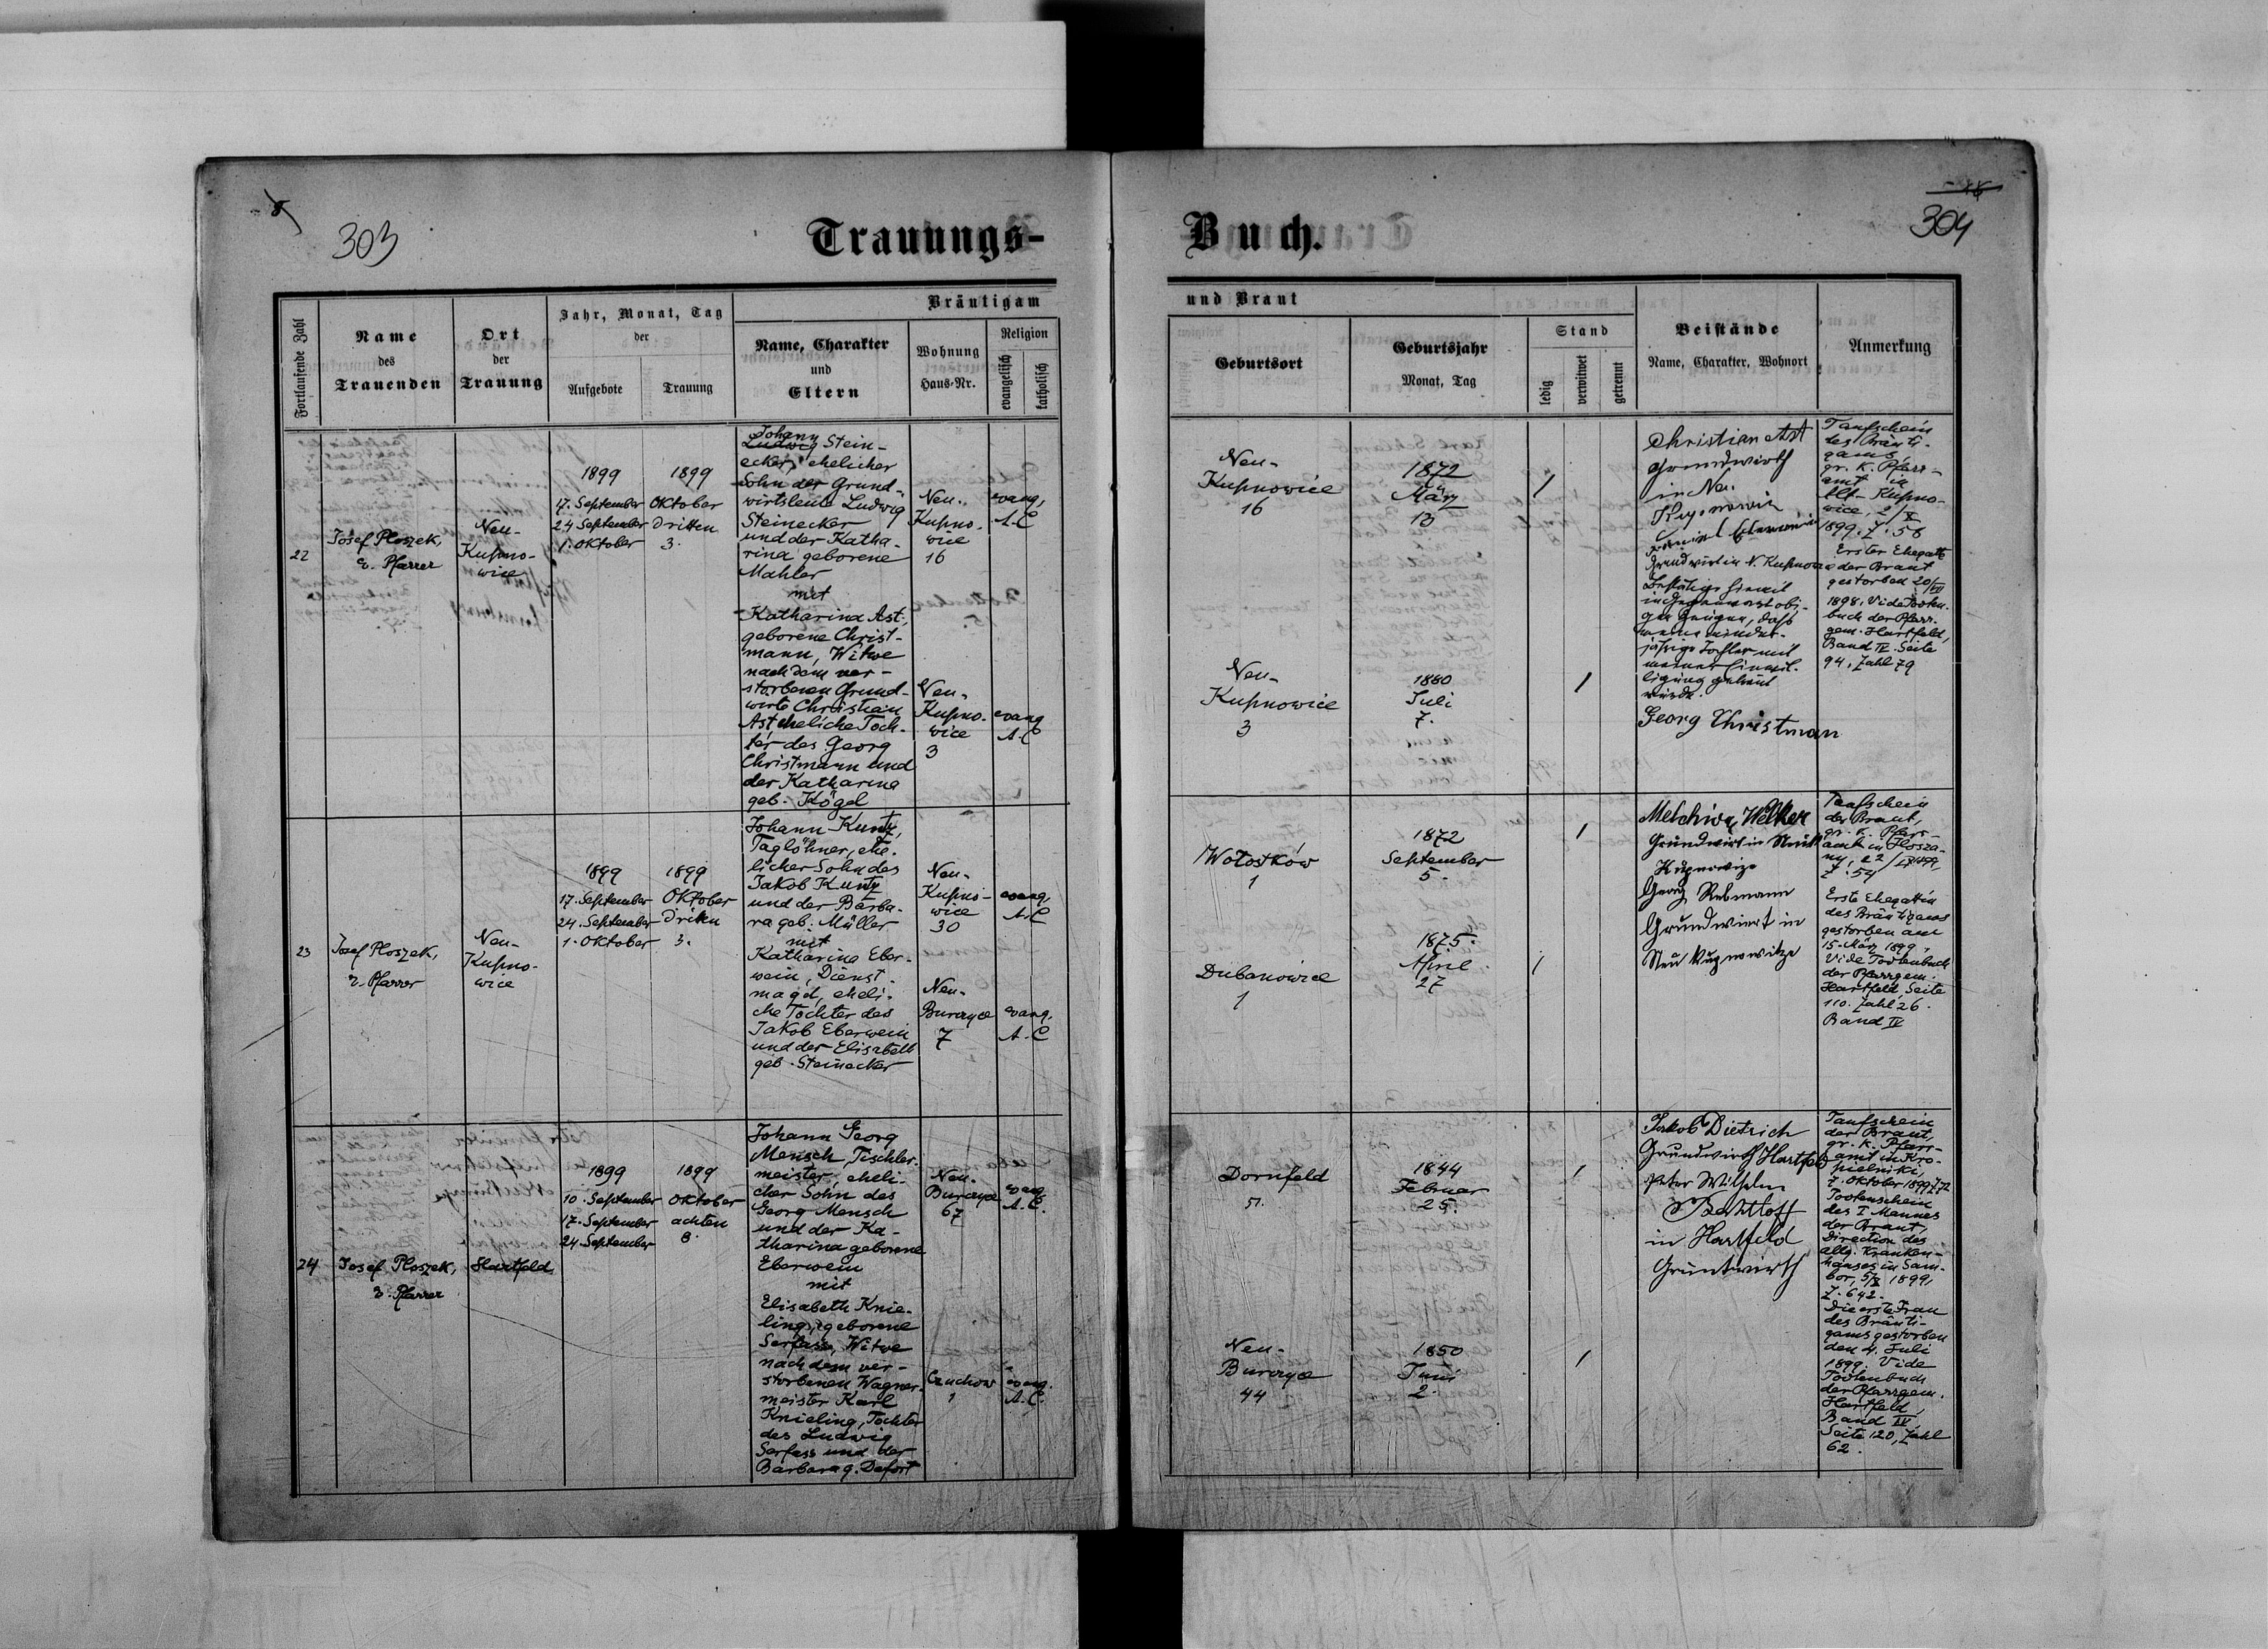 303
Trauungs-
Fortlaufende Zahl
Name
des
Trauenden
Ort
der
Trauung
Jahr, Monat, Tag
der
Aufgebote
Trauung
Bräutigam
Name, Charakter
und
Eltern
Wohnung
Haus-Nr.
Religion
evangelisch
katholisch
22
Josef Ploszek,
ev. Pfarrer
Neu-
Kupno-
wice
1899
17. September
24 September
1. Oktober
1899
Oktober
dritten
3.
Johann
Ludwig Stein-
ecker, ehelicher
Sohn der Grund-
wirtsleute Ludwig
Steinecker
und der Katha-
rina geborene
Mahler
mit
Katharina Ast,
geborene Christ-
mann, Witwe
nach dem ver-
storbenen Grund-
wirte Christian
Ast, eheliche Toch-
ter des Georg
Christmann und
der Katharina
geb. Kögel
Neu-
Kupno-
wice
16
evang.
A. C
Neu-
Kupno-
wice
3
evang
A. C
23
Josef Ploszek,
ev. Pfarrer
Neu-
Kupno-
wice
1899
17. September
24. September
1. Oktober
1899
Oktober
dritten
3.
Johann Kuntz,
Taglöhner, ehe-
licher Sohn des
Jakob Kuntz
und der Barba-
ra geb. Müller
mit
Katharina Eber-
wein, Dienst-
magd, eheli-
che Tochter des
Jakob Eberwein
und der Elisabeth
geb. Steinecker
Neu-
Kupno-
wice
30
evang.
A. C
Neu-
Burczyce
7
evang.
A. C
24
Josef Ploszek,
ev. Pfarrer
Hartfeld
1899
10. September
17. September
24. September
1899
Oktober
achten
8.
Johann Georg
Mensch, Tischler-
meister, eheli-
cher Sohn des
Georg Mensch
und der Ka-
tharina geborene
Eberwein
mit
Elisabeth Knie-
ling, geborene
Serfass, Witwe
nach dem ver-
storbenen Wagner-
meister Karl
Knieling, Tochter
des Ludwig
Serfass und der
Barbara g. Defort
Neu-
Burczyce
67
evang
A. C.
Czuchow
1
evang.
A. C.
304
Buch.
und Braut
Geburtsort
Geburtsjahr
Monat, Tag
Stand
ledig
verwitwet
getrennt
Beistände
Name, Charakter, Wohnort
Anmerkung
Neu-
Kupnowice
16
1872
März
13
Neu-
Kupnowice
3
1880
Juli
7.
Christian Ast
Grundwirth
in Neu
Grundwirt in N. Kupnowice
Bestätige hiemit
in Gegenwart obi-
ger Zeugen, daß
meine minder-
jährige Tochter mit
meiner Einwil-
ligung getraut
wurde.
Georg Christman
Taufschein
des Bräuti-
gams
gr. K. Pfarr-
amt in
Alt-Kupno-
wice, 2/X
1899. Z. 58
Erster Ehegatte
der Braut
gestorben 20/VII
1898. Vide Todten-
buch der Pfarr-
gem. Hartfeld,
Band IV. Seite
94, Zahl 79
Wołostków
1
1872
September
5.
Dubanowice
1
1875.
April
27
Melchior Welker
Grundwirt in Neu
Georg Rebmann
Grundwirt in
Neu Kupnowitze
Taufschein
der Braut,
gr. K. Pfarr-
amt in Hosza-
ny, 22/IX 1899,
Z. 54
Erste Ehegattin
des Bräutigams
gestorben am
15. März 1899,
Vide Todtenbuch
der Pfarrgem.
Hartfeld, Seite
110. Zahl 26.
Band IV
Dornfeld
51.
1844
Februar
25.
Neu-
Burczyce
44
1850
Juni
2.
Jakob Dietrich
Grundwirth Hartfeld
Peter Wilhelm
in Hartfeld
Gruntwirth
Taufschein
der Braut,
gr. K. Pfarr-
amt in Kro-
pielniki,
7. Oktober 1899 Z 72
Todtenschein
des I. Mannes
der Braut,
Direction des
allg. Kranken-
hauses in Sam-
bor, 5/X 1899,
Z. 642.
Die erste Frau
des Bräuti-
gams gestorben
den 4. Juli
1899. Vide
Todtenbuch
der Pfarrgem.
Hartfeld,
Band IV,
Seite 120, Zahl
62.